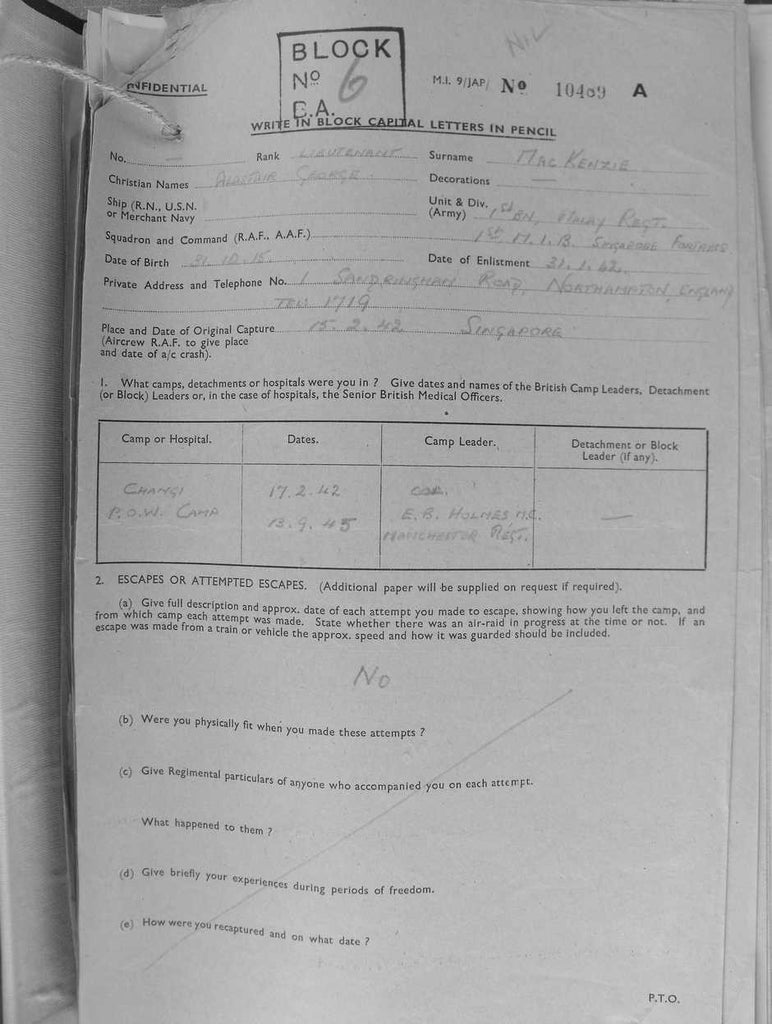 NIL
BLOCK
No 6
E.A.
CONFIDENTIAL
M.I. 9/JAP/ No 10409 A
WRITE IN BLOCK CAPITAL LETTERS IN PENCIL
No. — Rank LIEUTENANT Surname MAC KENZIE
Christian Names ALASTAIR GEORGE. Decorations
Ship (R.N., U.S.N. or Merchant Navy Unit & Div. (Army) 1st BN, MALAY REGT.
Squadron and Command (R.A.F., A.A.F.) 1st M.I.B. SINGAPORE FORTRESS
Date of Birth 31.10.15. Date of Enlistment 31.1.42.
Private Address and Telephone No. 1 SANDRINGHAM ROAD, NORTHAMPTON, ENGLAND
TEL. 1719
Place and Date of Original Capture 15.2.42 SINGAPORE
(Aircrew R.A.F. to give place
and date of a/c crash).
1. What camps, detachments or hospitals were you in ? Give dates and names of the British Camp Leaders, Detachment
(or Block) Leaders or, in the case of hospitals, the Senior British Medical Officers.
Camp or Hospital. Dates. Camp Leader. Detachment or Block
Leader (if any).
CHANGI 17.2.42 COL.
P.O.W. CAMP 13.9.45 E.B. HOLMES M.C. —
MANCHESTER REGT.
2. ESCAPES OR ATTEMPTED ESCAPES. (Additional paper will be supplied on request if required).
(a) Give full description and approx. date of each attempt you made to escape, showing how you left the camp, and
from which camp each attempt was made. State whether there was an air-raid in progress at the time or not. If an
escape was made from a train or vehicle the approx. speed and how it was guarded should be included.
NO
(b) Were you physically fit when you made these attempts ?
(c) Give Regimental particulars of anyone who accompanied you on each attempt.
What happened to them ?
(d) Give briefly your experiences during periods of freedom.
(e) How were you recaptured and on what date ?
P.T.O.